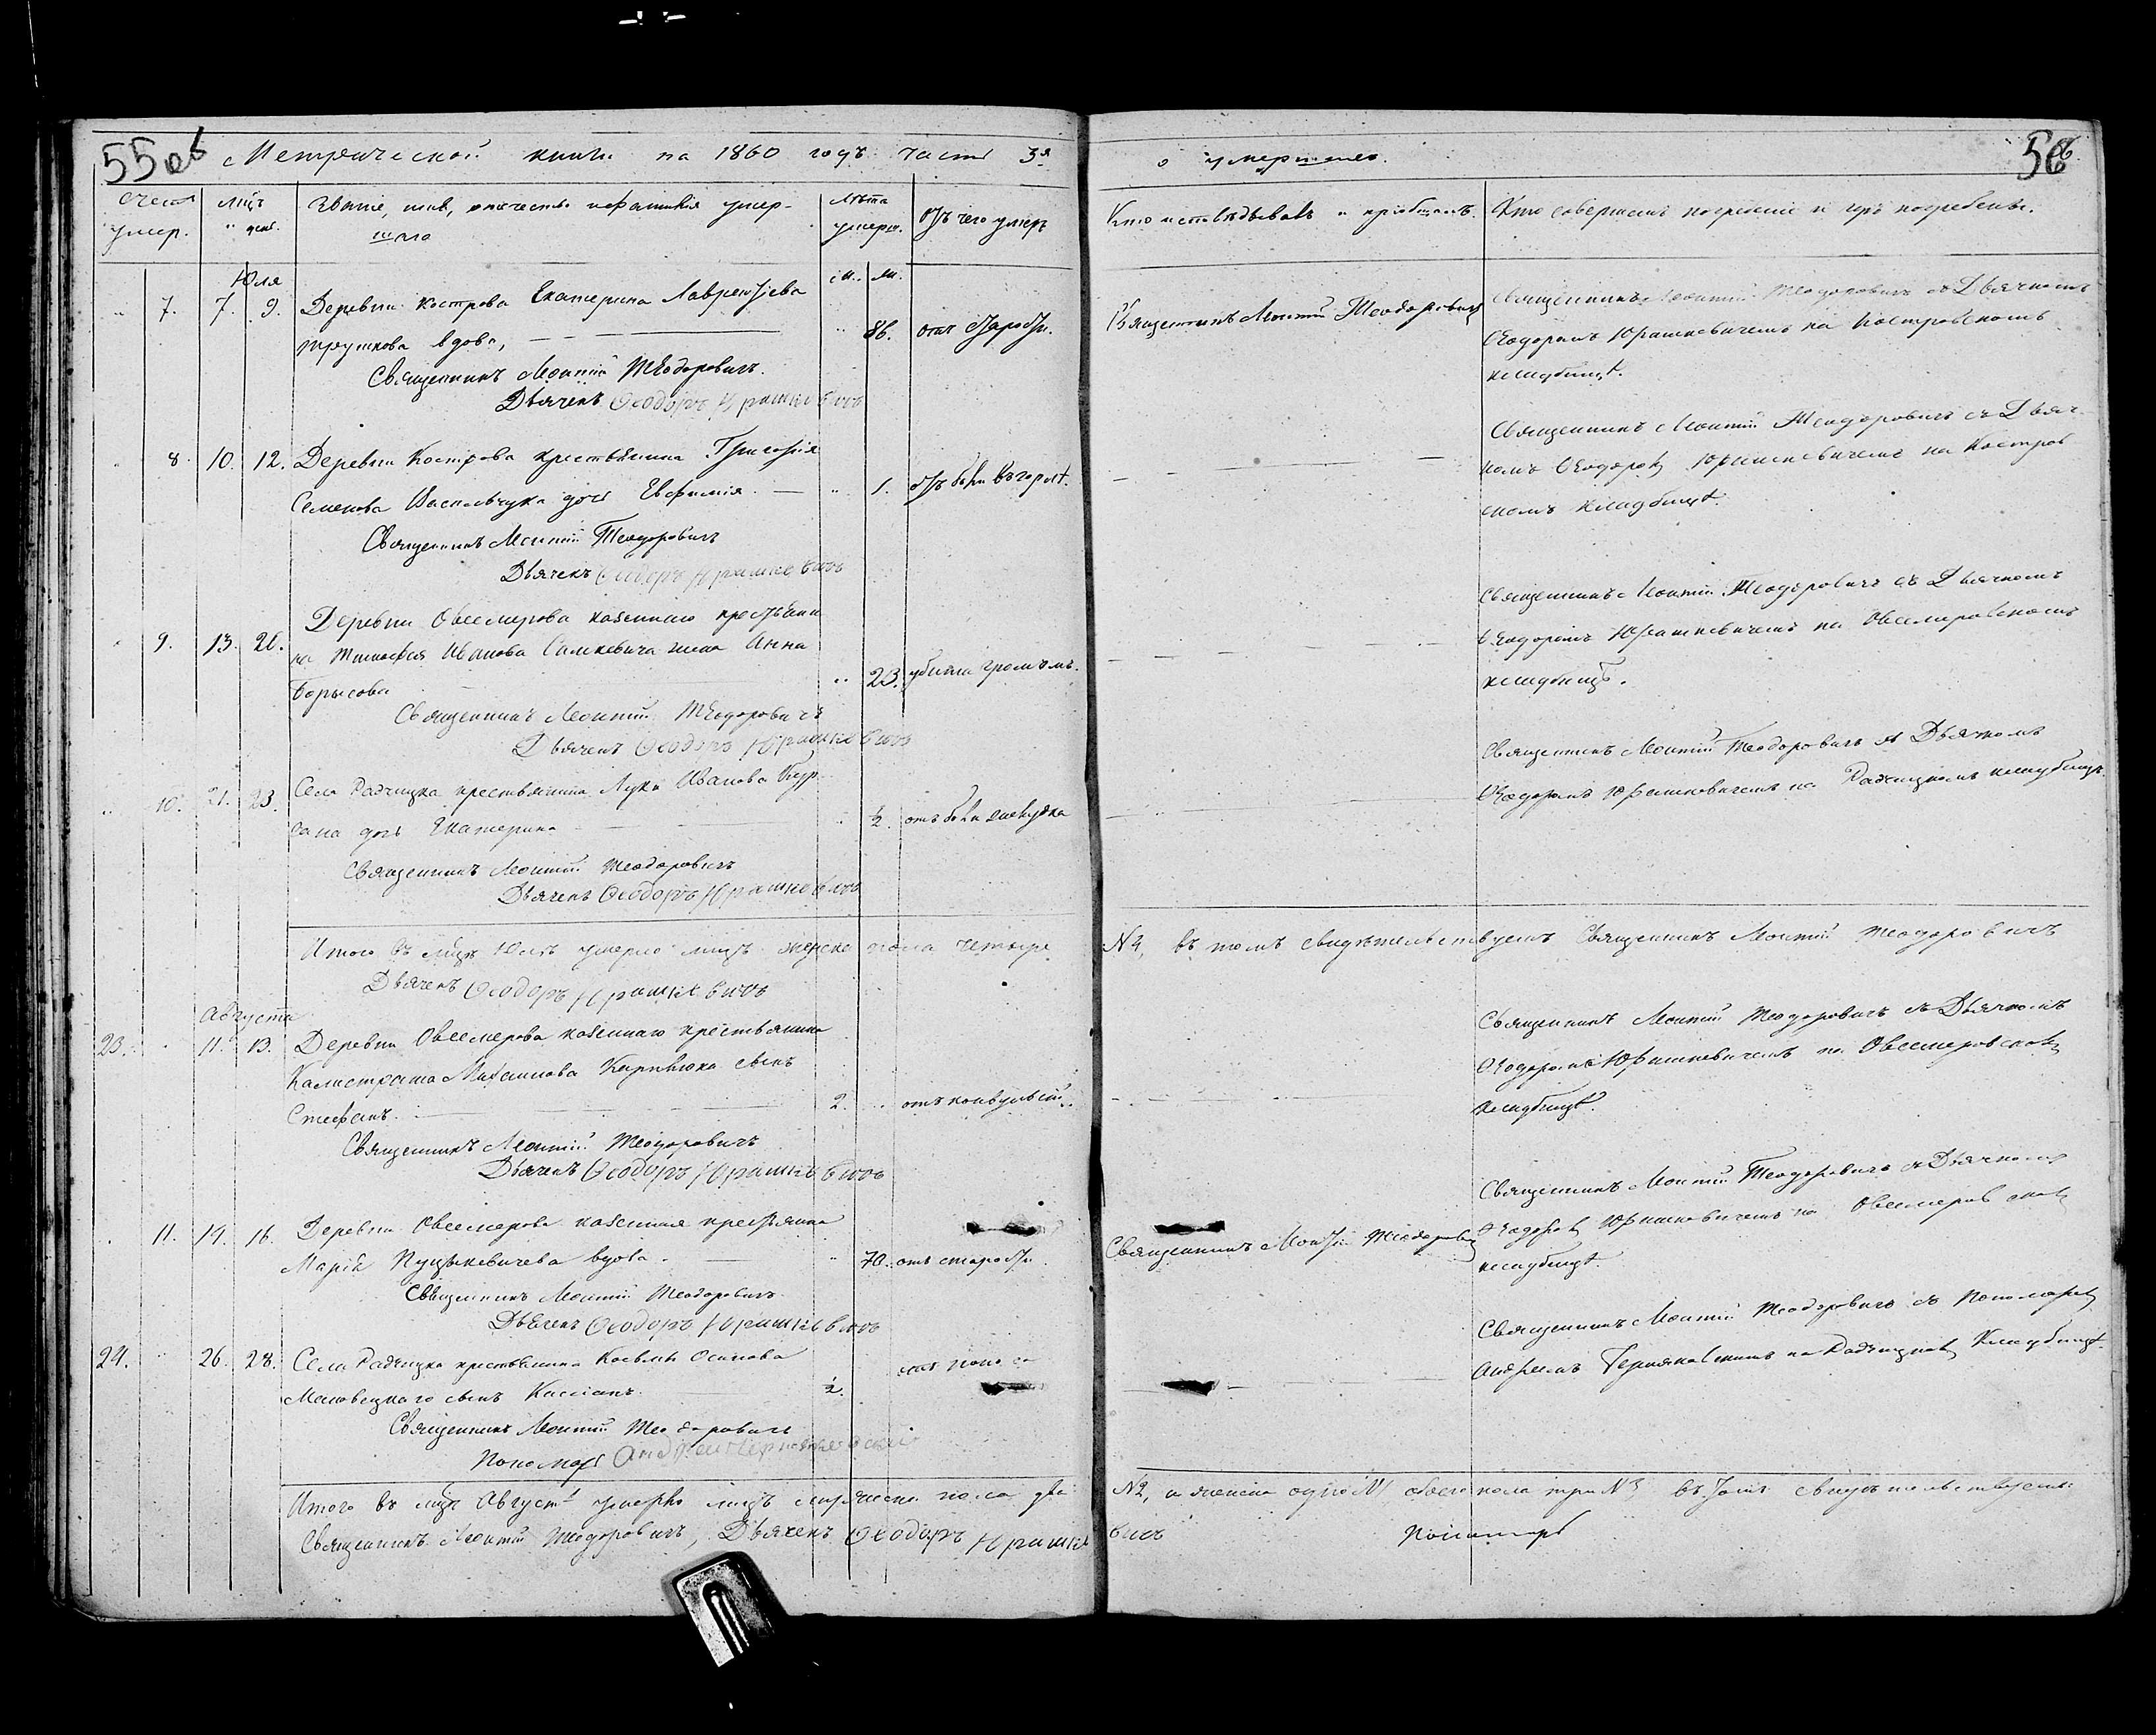 55об Метрической книги на 1860 годъ часть 3я о умершихъ. 56
Счетъ умер. Мцъ и день. Званіе, имя, отечество и фамилія умер- Лѣта умерш. Отъ чего умеръ Кто исповѣдывалъ и пріобщалъ. Кто совершалъ погребеніе и гдѣ погребены.
шаго
Юля м. ж.
7. 7. 9. Деревни Кострова Екатерина Лаврентіева
вдова, 86. отъ старости.
Священникъ Леонтій Теодоровичъ.
Дьячекъ Ѳеодоръ Юрашкевичъ
Священникъ Леонтій Теодоровичъ
Священникъ Леонтій Теодоровичъ съ Дьячкомъ
Ѳеодоромъ Юрашкевичемъ на Костровскомъ
кладбищѣ.
8. 10. 12. Деревни Кострова крестьянина Григорія
Семенова дочь Евфимія. 1. отъ боли въ горлѣ.
Священникъ Леонтій Теодоровичъ
Дьячекъ Ѳеодоръ Юрашкевичъ
Священникъ Леонтій Теодоровичъ съ Дьяч-
комъ Ѳеодоромъ Юрашкевичемъ на Костров
скомъ кладбищѣ.
9. 13. Деревни Овсемерова казеннаго крестьяни
на Тимофея Иванова Самкевича жена Анна
Борисова 23. убита громомъ.
Священникъ Леонтій Теодоровичъ
Дьячекъ Ѳеодоръ Юрашкевичъ
Священникъ Леонтій Теодоровичъ съ Дьячкомъ
Ѳеодоромъ Юрашкевичемъ на Овсемеровскомъ
кладбищѣ.
10. 21. 23. Села Радчицка крестьянина Луки Иванова
дочь Екатерина ½. отъ боли желудка
Священникъ Леонтій Теодоровичъ
Дьячекъ Ѳеодоръ Юрашкевичъ
Священникъ Леонтій Теодоровичъ съ Дьячкомъ
Ѳеодоромъ Юрашкевичемъ на Радчицкомъ кладбищѣ.
Итого въ мцѣ Юлѣ умерло лицъ женска пола четыре №4, въ томъ свидѣтельствуемъ Священникъ Леонтій Теодоровичъ
Дьячекъ Ѳеодоръ Юрашкевичъ
Августа
23. 11. 13. Деревни Овсемерова казеннаго крестьянина
Калистрата Михаилова Карпвюка сынъ
Стефанъ. 2. отъ конвульсіи.
Священникъ Леонтій Теодоровичъ
Дьячекъ Ѳеодоръ Юрашкевичъ
Священникъ Леонтій Теодоровичъ съ Дьячкомъ
Ѳеодоромъ Юрашкевичемъ на Овсемеровскомъ
кладбищѣ.
11. 14. 16. Деревни Овсемерова казенная крестьянка
Марія вдова. 70. отъ старости.
Священникъ Леонтій Теодоровичъ
Дьячекъ Ѳеодоръ Юрашкевичъ
Священникъ Леонтій Теодоровичъ
Священникъ Леонтій Теодоровичъ съ Дьячкомъ
Ѳеодоромъ Юрашкевичемъ на Овсемеровскомъ
кладбищѣ.
24. 26. 28. Села Радчицка крестьянина Козьмы Осипова
сынъ Кассіанъ. ½. отъ поноса
Священникъ Леонтій Теодоровичъ
Пономарь Андрей
Священникъ Леонтій Теодоровичъ съ Пономаремъ
Андреемъ на Радчицкомъ Кладбищѣ.
Итого въ мцѣ Августѣ умерло лицъ мужеска пола два №2, а женска одно №1 обоего пола три №3 въ томъ свидѣтельствуемъ
Священникъ Леонтій Теодоровичъ, Дьячекъ Ѳеодоръ Юрашкевичъ Пономарь